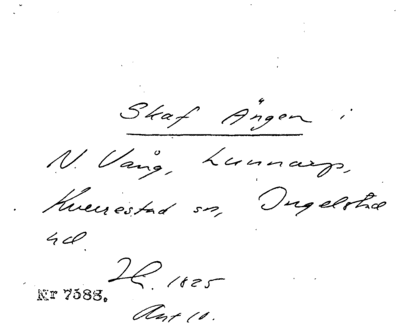 Skaf Ängen i
N. Vång, Lunnarp,
Kverrestad sn, Ingelstad
hd.
1825
Nr 7588.
Akt 10.